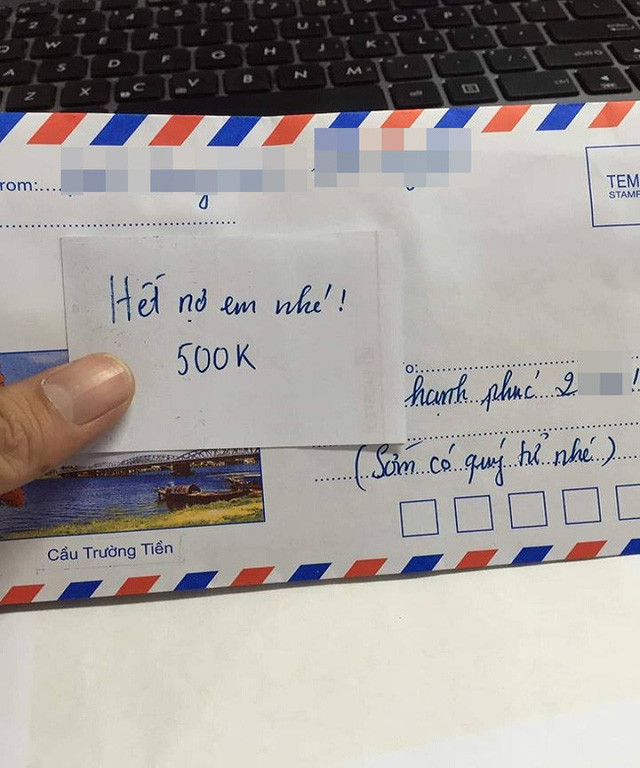 rom:....
TEM
STAMP
Hết nợ em nhé!
500K
o:
hạnh phúc 2 !
(Sớm có quý tử nhé)
Cầu Trường Tiền